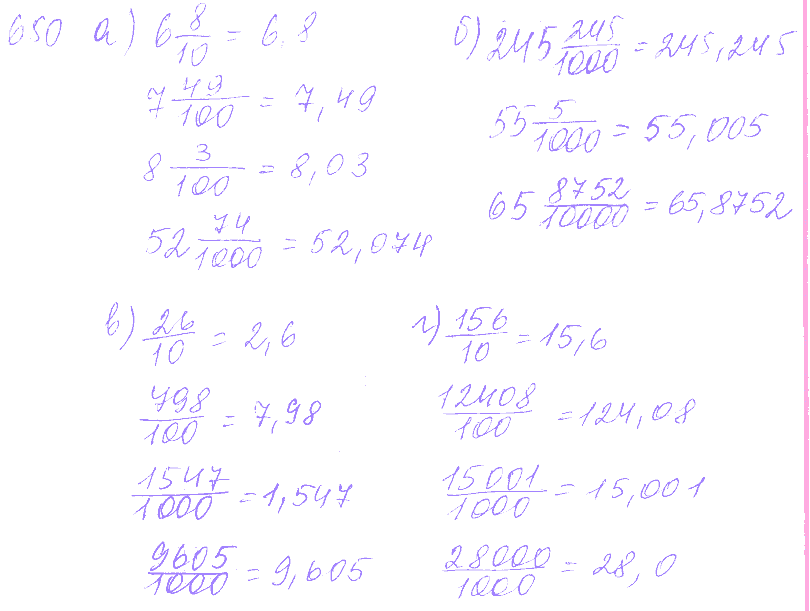 650 а) 6 8/10 = 6,8
7 49/100 = 7,49
8 3/100 = 8,03
52 74/1000 = 52,074
б) 245 245/1000 = 245,245
55 5/1000 = 55,005
65 8752/10000 = 65,8752
в) 26/10 = 2,6
798/100 = 7,98
1547/1000 = 1,547
9605/1000 = 9,605
г) 156/10 = 15,6
12408/100 = 124,08
15001/1000 = 15,001
28000/1000 = 28,0